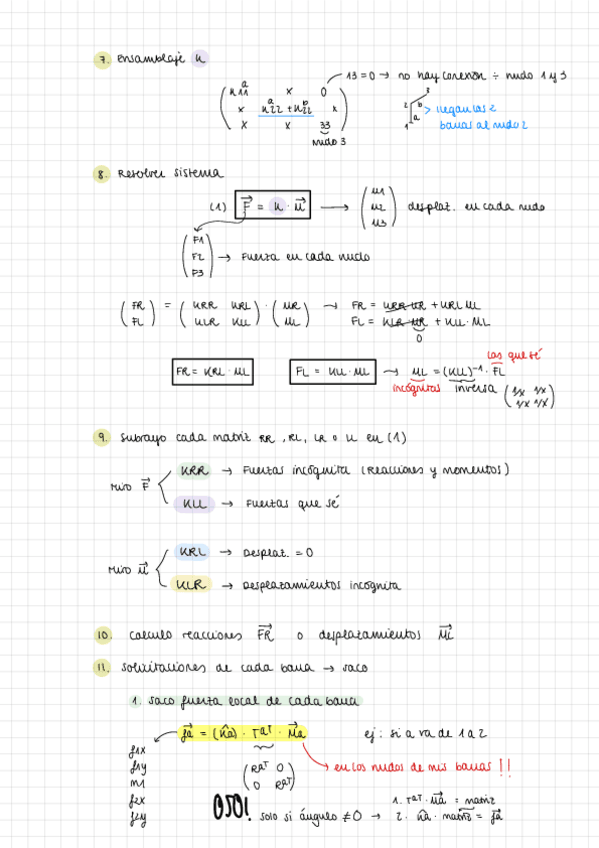 7. Ensamblaje K
13 = 0 → no hay conexión ÷ nudo 1 y 3
K11^a x 0
x K22^a + K22^b x
x x 33
nudo 3
3
2 b
a
1
> llegan las 2
barras al nudo 2
8. Resolver sistema
(1) F = K · u → u1 u2 u3 desplaz. en cada nudo
F1
F2 → Fuerza en cada nudo
F3
(FR FL) = (KRR KRL KLR KLL) · (uR uL) → FR = KRR·uR + KRL uL
FL = KLR·uR + KLL·uL
0
las que sé
FR = KRL·uL FL = KLL·uL → uL = (KLL)⁻¹ · FL
incógnitas inversa (1/x 1/x 1/x 1/x)
9. Subrayo cada matriz RR, RL, LR o LL en (1)
Miro F
KRR → Fuerzas incógnita (reacciones y momentos)
KLL → Fuerzas que sé
Miro u
KRL → Desplaz. = 0
KLR → Desplazamientos incógnita
10. Calculo reacciones FR o desplazamientos uL
11. Solicitaciones de cada barra → saco
1. saco fuerza local de cada barra
fa = (k̂a) · TaT · ua ej: si a va de 1 a 2
f1x
f1y
m1
f2x
f2y
(RaT 0 0 RaT)
→ en los nudos de mis barras !!
OJO! solo si ángulo ≠ 0 → 1. TaT · ua = matriz
2. k̂a · matriz = fa